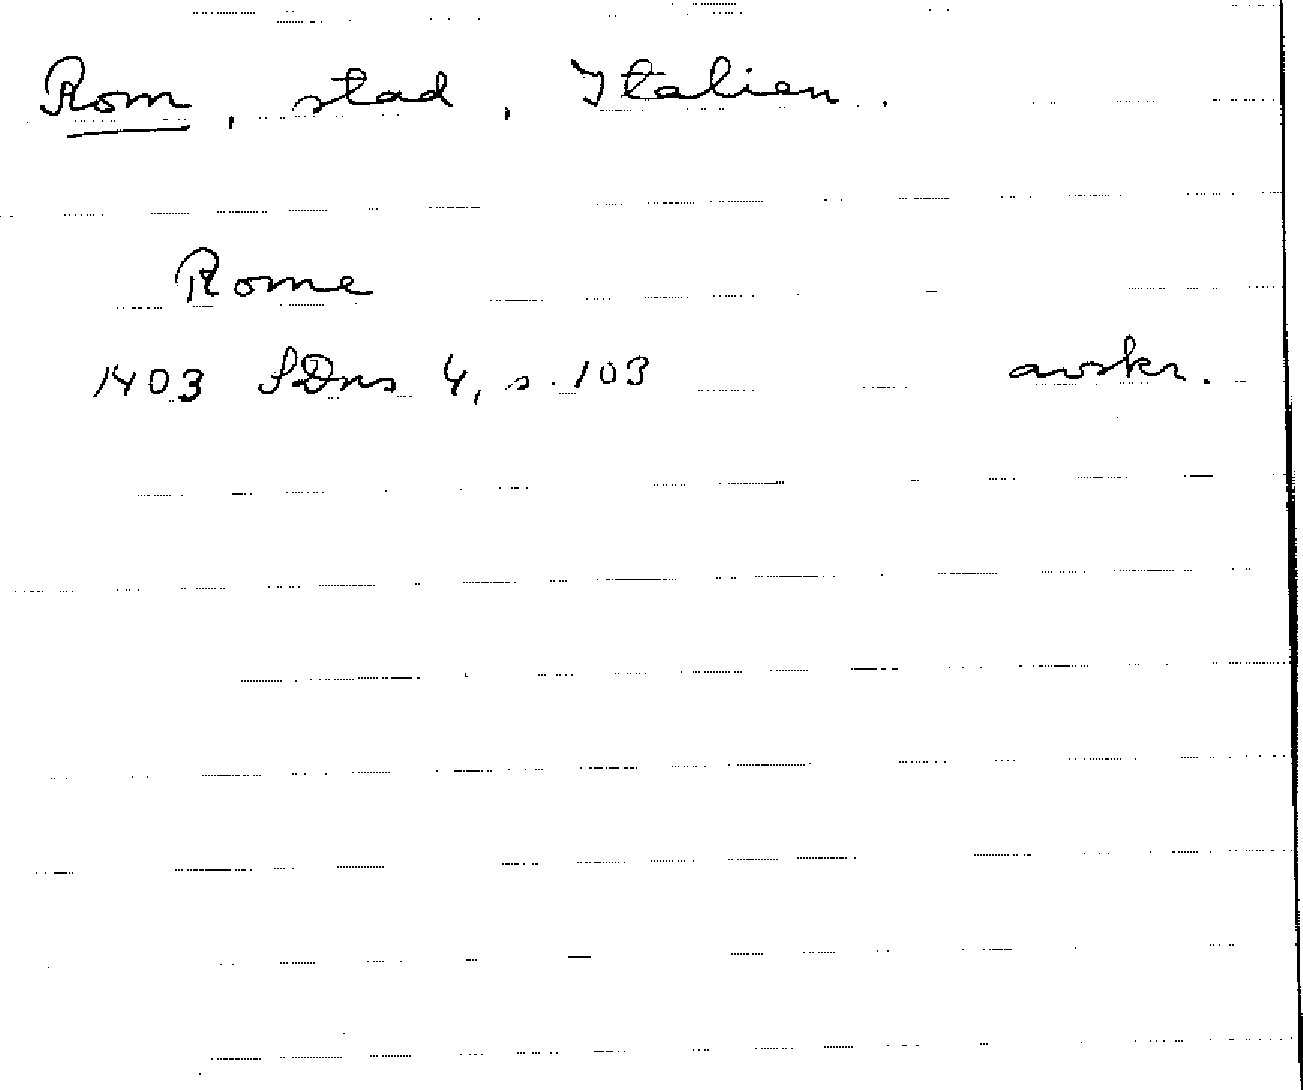 Rom, stad, Italien.
Rome
1403 SDns 4, s. 103 avskr.